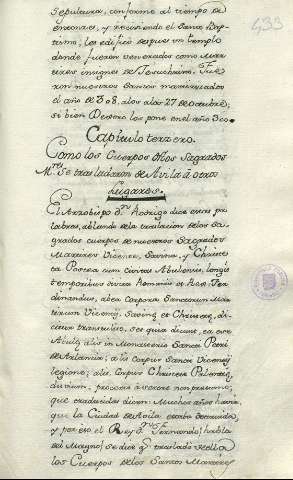 433
Sepultura, conforme al tiempo de
entonces, y reciviendo el Santo Bap-
tismo, les edificó despues un templo
donde fueron venerados como Mar-
tires insignes de Jesuchristo. Fue-
ron nuestros Santos martirizados
el año de 308. a los 27 de octubre;
si bien Dextro los pone en el año 300.
Capitulo terzero.
Como los Cuerpos de los Sagrados
M.res se trasladaron de Avila á otros
Lugares.
El Arzobispo Dn. Rodrigo dice estas pa-
labras, ablando de la traslacion de los Sa-
grados cuerpos de nuestros Sagrados
Martires Vicente, Savina, y Christeta
Postea cum civitas Abulensis, longis
temporibus
Fer-
dinandus, corpora Sanctorum Mar-
tirum Vicentij, Savinę et Christetę, di-
citur transtulisse,
Abulę, alij in Monasterio Sancti Petri
de Arlancia; alij corpus Sancti Vicentij
Legione; alij corpus Christetę Palentię,
que traducidas dicen: Muchos años havia,
que la Ciudad de Avila estaba destruida,
y por eso el Rey Dn. Fernando habla
del Magno, se dice q.e trasladó de ella
los Cuerpos de los Santos Martires